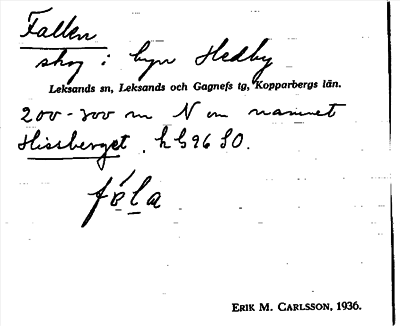 Fallen
skog i byn Hedby
Leksands sn, Leksands och Gagnefs tg, Kopparbergs län.
200-300 m N om namnet
Hissberget. kb 96 SO.
fála
ERIK M. CARLSSON, 1936.